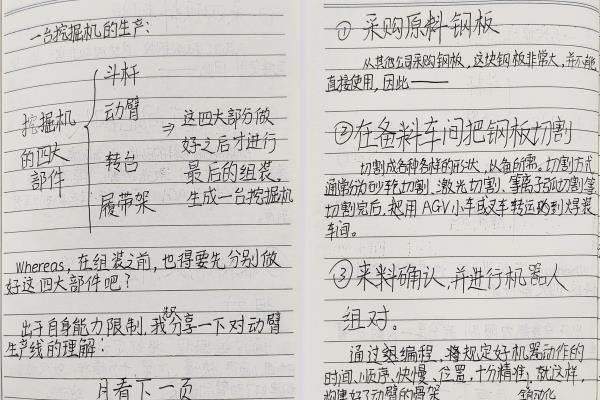 一台挖掘机的生产:
挖掘机
的四大
部件
斗杆
动臂
转台
履带架
⇒ 这四大部分做
好之后才进行
最后的组装。
生成一台挖掘机
Whereas, 在组装之前,也得要先分别做
好这四大部件吧?
出于自身能力限制,我想分享一下对动臂
生产线的理解:
看下一页
① 采购原料钢板
从其他公司采购钢板,这块钢板非常大,并不能
直接使用,因此——
②在备料车间把钢板切割
切割成各种各样的形状,以备所需。切割方式
通常为砂轮切割、激光切割、等离子弧切割等
切割完后,把用AGV小车或叉车转运到焊装
车间。
③来料确认,并进行机器人
组对。
通过编程、将规定好机器动作的
时间、顺序、快慢、位置,十分精准,就这样,
构建好了动臂的骨架